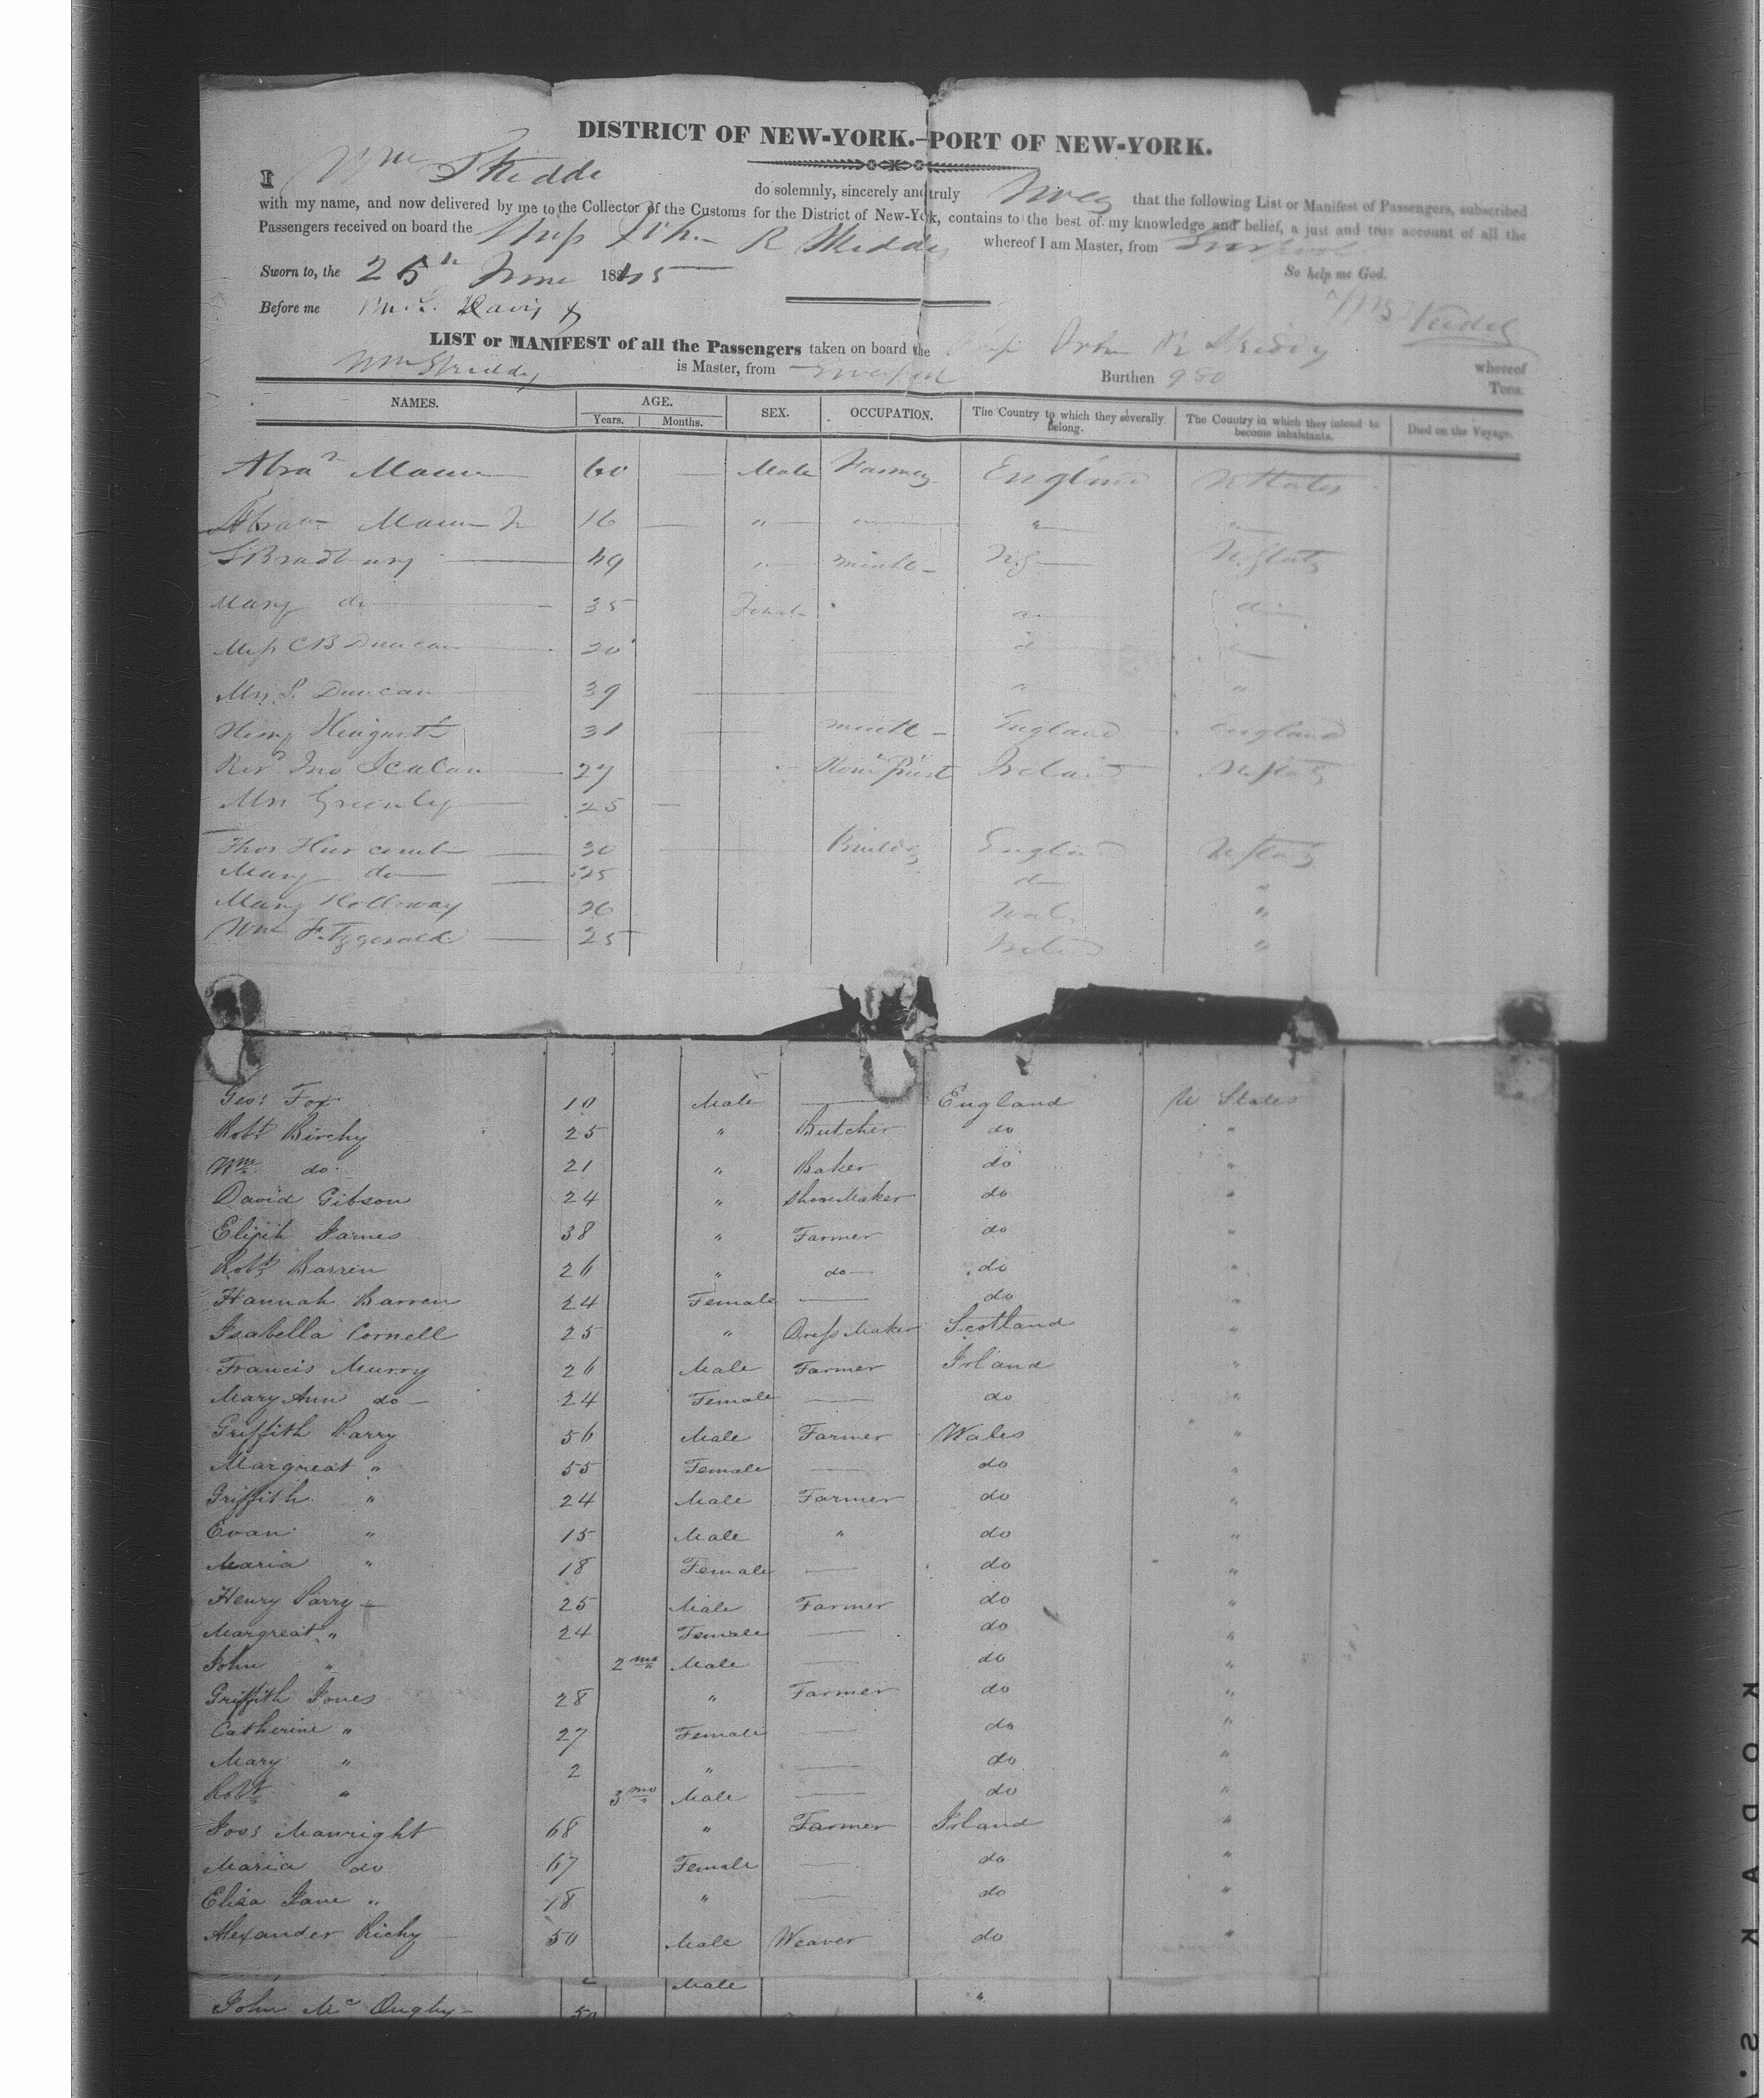 DISTRICT OF NEW-YORK.—PORT OF NEW-YORK.
I Wm Skiddy do solemnly, sincerely and truly that the following List or Manifest of Passengers, subscribed
with my name, and now delivered by me to the Collector of the Customs for the District of New-York, contains to the best of my knowledge and belief, a just and true account of all the
Passengers received on board the Ship John R Skiddy whereof I am Master, from Liverpool
Sworn to, the 25th June 1845 So help me God.
Before me Davis Wm Skiddy
LIST or MANIFEST of all the Passengers taken on board the Ship John R Skiddy whereof
Wm Skiddy is Master, from Liverpool Burthen 980 Tons.
NAMES. AGE. SEX. OCCUPATION. The Country to which they severally belong. The Country in which they intend to become inhabitants. Died on the Voyage.
Years. Months.
60 — Male Farmer England U States
16 — " " "
Bradbury 49 " U.S U. States
Mary do 35 Female do
Miss C B Duncan 20
Mrs S. Duncan 39 " "
Henry 31 England England
Revd Jno Scalan 27 Priest Ireland U. States
Mrs Greenley 25 —
Thos 30 Builder England U States
Mary do 25 do "
Mary Holloway 26 Wales "
Wm Fitzgerald 25 Ireland "
Geo: Fox 10 Male — England U States
Robt Birchy 25 " Butcher do "
Wm do 21 " Baker do "
David Gibson 24 " Shoe Maker do "
Elijih James 38 " Farmer do "
Robt Barren 26 " do — do "
Hannah Barren 24 Female — do "
Isabella Cornell 25 " Dress Maker Scotland "
Francis Murry 26 Male Farmer Irland "
Mary Ann do — 24 Female — do "
Griffith Parry 56 Male Farmer Wales "
Margreat " 55 Female — do "
Griffith " 24 Male Farmer do "
Evan " 15 Male " do "
Maria " 18 Female — do "
Henry Parry — 25 Male Farmer do "
Margreat " 24 Female — do "
John " 2 mo Male — do "
Griffith Jones 28 " Farmer do "
Catherine " 27 Female — do "
Mary " 2 " — do "
Robt " 3 mo Male — do "
Jos: Manright 68 " Farmer Irland "
Maria do 67 Female — do "
Eliza Jane " 18 " — do "
Alexander Richy 50 Male Weaver do "
Male
John Mc 50 "
KODAK S.